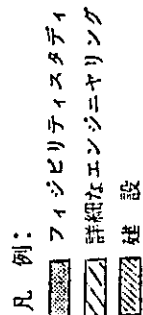 凡例:
フィジビリティスタディ
詳細なエンジニヤリング
建設